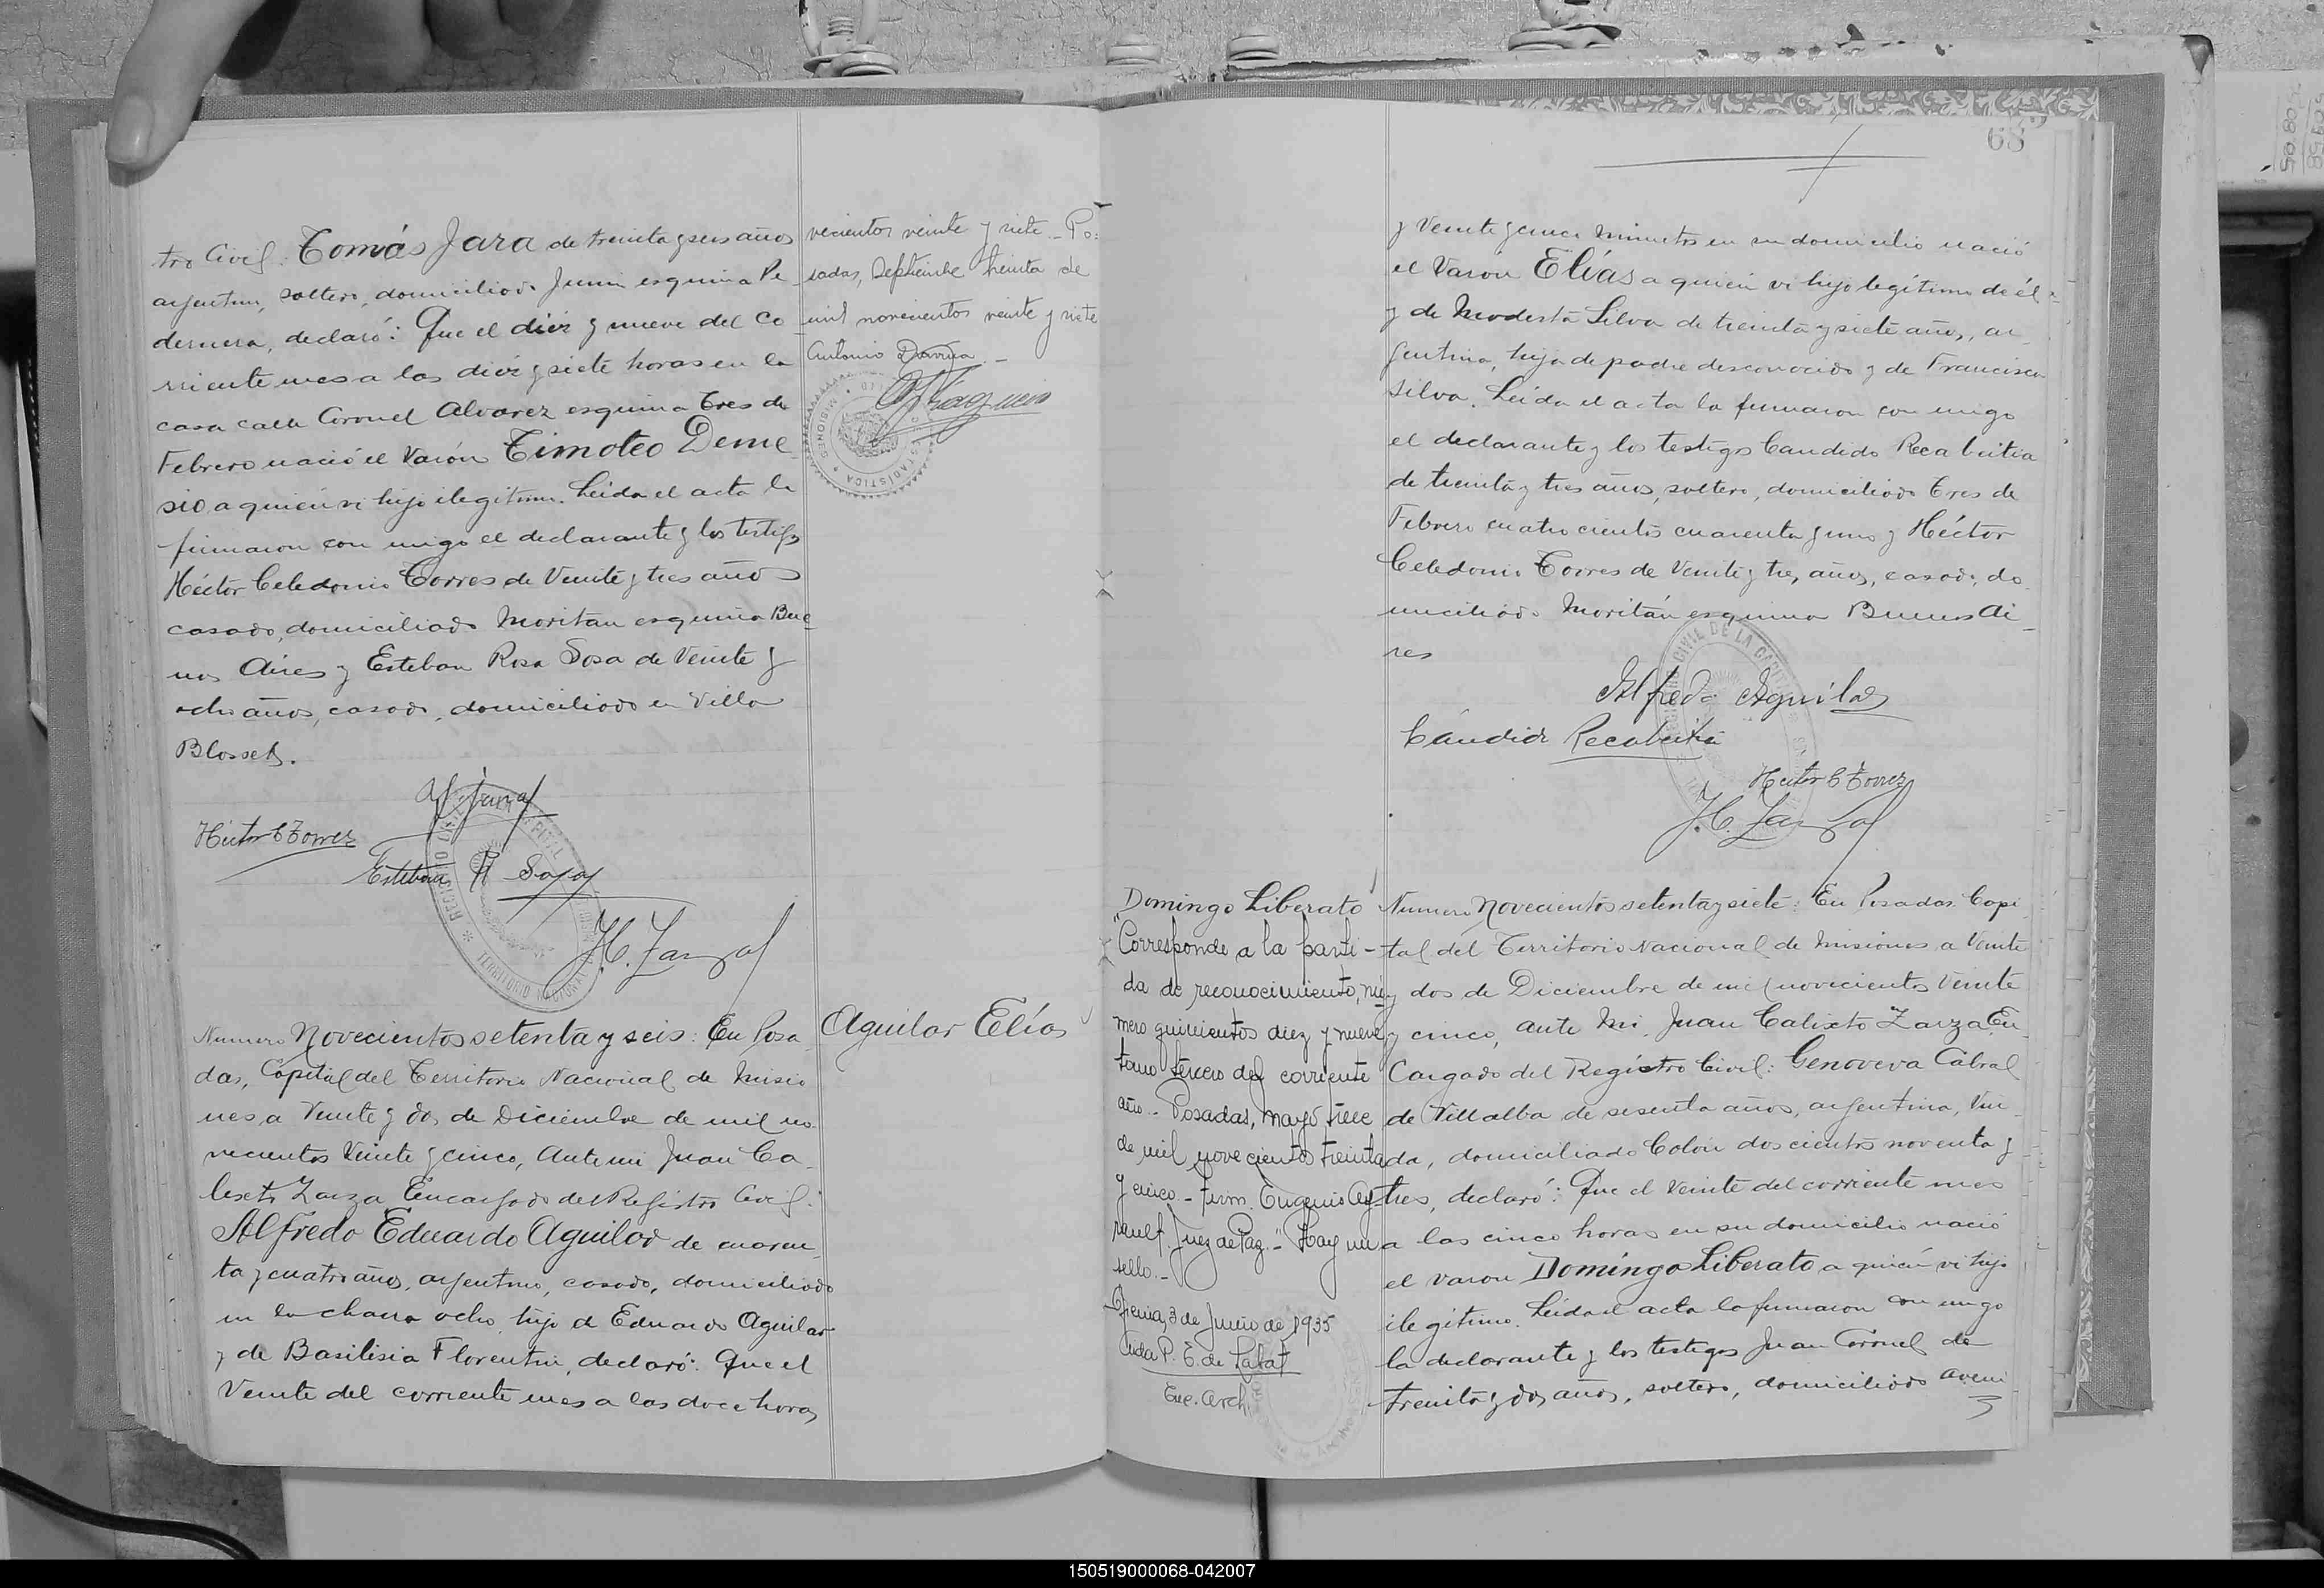 tro Civil: Tomás Jara de treinta y seis años
argentino, soltero, domiciliado Junin esquina Pe
dernera, declaró: Que el diez y nueve del co
rriente mes a las diez y siete horas en la
casa calle Coronel Alvarez esquina Tres de
Febrero nació el varón Timoteo Deme
sio a quien vi hijo ilegitimo. Leida el acta la
firmaron con migo el declarante y los testigos
Héctor Celedonio Torres de veinte y tres años
casado, domiciliado Moritan esquina Bue
nos Aires y Esteban Rosa Sosa de veinte y
ocho años, casado, domiciliado en Villa
Blosset.
Hector C Torres
Esteban R Sosa
J C. Zarza
REGISTRO CIVIL
TERRITORIO NACIONAL
Numero Novecientos setenta y seis: En Posa
das, Capital del Territorio Nacional de Misio
nes a veinte y dos de Diciembre de mil no
vecientos veinte y cinco, Ante mi Juan Ca
lixto Zarza Encargado del Registro Civil:
Alfredo Eduardo Aguilar de cuaren
ta y cuatro años, argentino, casado, domiciliado
en la chacra ocho, hijo de Eduardo Aguilar
y de Basilisia Florentin, declaró: Que el
veinte del corriente mes a las doce horas
vecientos veinte y siete. Po=
sadas, Septiembre treinta de
mil novecientos veinte y siete
Antonio
Aguilar Elías
68
y veinte y cinco minutos en su domicilio nació
el varón Elías a quien vi hijo legítimo de él
y de Modesta Silva de treinta y siete años, ar
gentina, hija de padre desconocido y de Francisca
Silva. Leida el acta la firmaron con migo
el declarante y los testigos Candido Recabeitia
de treinta y tres años, soltero, domiciliado Tres de
Febrero cuatrocientos cuarenta y uno y Héctor
Celedonio Torres de veinte y tres años, casado, do
miciliado Moritán esquina Buenos Ai
res
Alfredo Aguilar
Cándido Recabeitia
Hector C Torres
J C. Zarza
Domingo Liberato
"Corresponde a la parti-
da de reconocimiento, nú
mero quinientos diez y nueve
tomo tercero del corriente
año.- Posadas, mayo trece
de mil novecientos treinta
y cinco.- firm. Eugenio
Juez de Paz.- Hay un
sello.-
3 de Junio de 1935
Aida P. E. de
Enc. Arch.
Numero Novecientos setenta y siete: En Posadas Capi
tal del Territorio Nacional de Misiones a veinte
y dos de Diciembre de mil novecientos veinte
y cinco, ante mi, Juan Calixto Zarza En
Cargado del Registro Civil: Genoveva Cabral
de Villalba de sesenta años, argentina, viu
da, domiciliada Colón dos cientos noventa y
tres, declaró: Que el veinte del corriente mes
a las cinco horas en su domicilio nació
el varon Domingo Liberato a quien vi hijo
ilegítimo. Leida el acta la firmaron con migo
la declarante y los testigos Juan Coronel de
treinta y dos años, soltero, domiciliado aveni
150519000068-042007